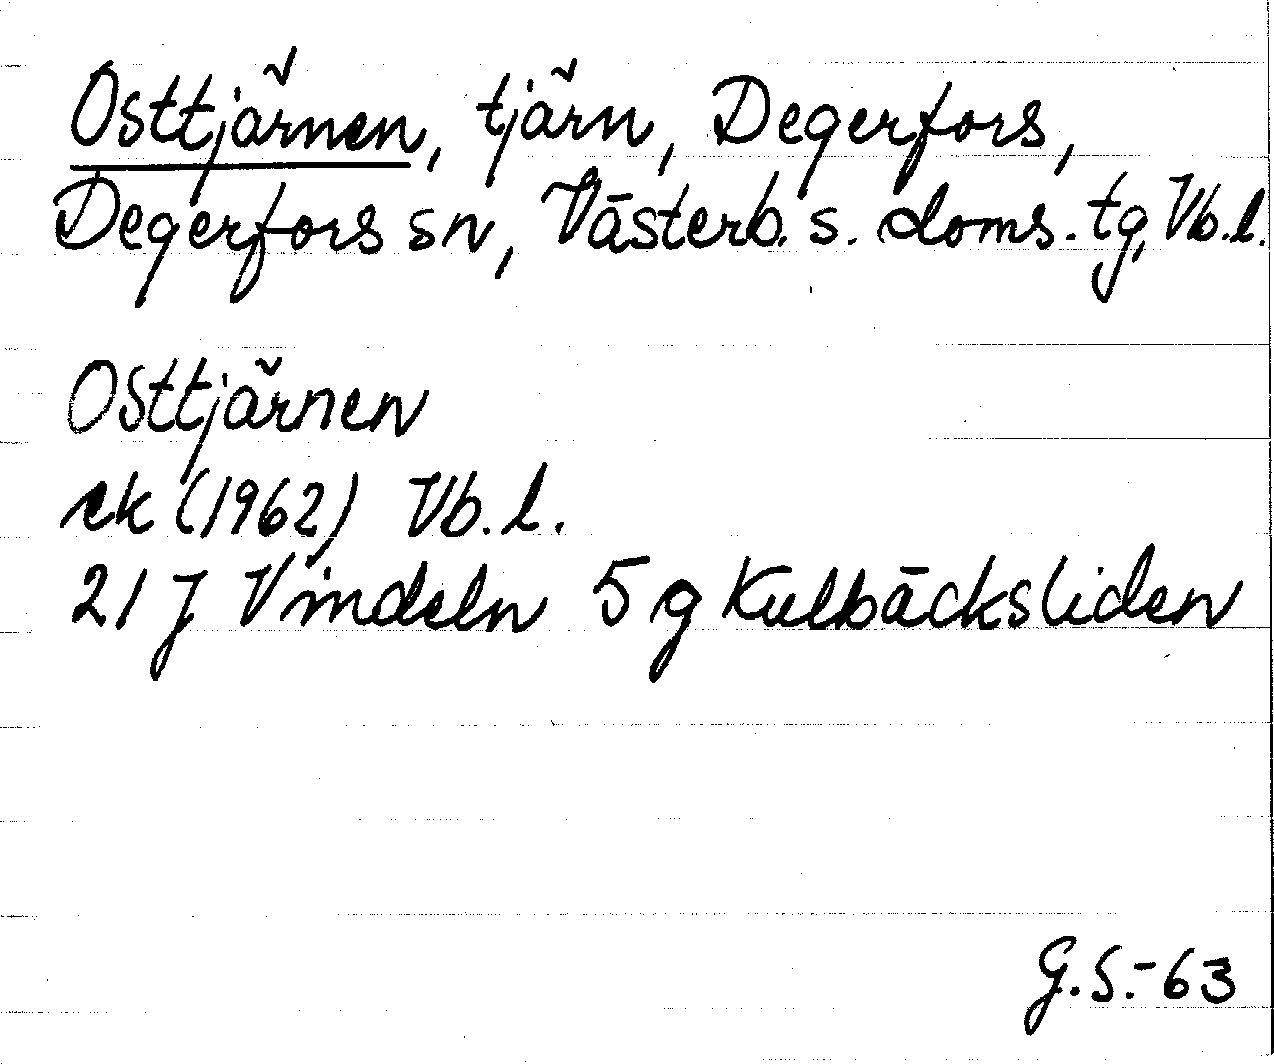 Osttjärnen, tjärn, Degerfors,
Degerfors sn, Västerb. s. doms. tg, Vb. l.
Osttjärnen
ek (1962) Vb. l.
21 J Vindeln 5 g Kulbäcksliden
G.S.-63